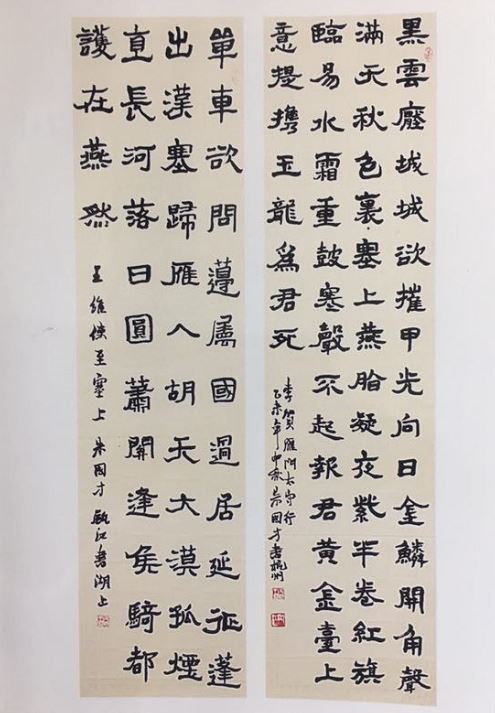 黑雲壓城城欲摧甲光向日金鱗開角聲
滿天秋色裏塞上燕脂凝夜紫半卷紅旗
臨易水霜重鼓寒聲不起報君黃金臺上
意提攜玉龍爲君死
李賀雁門太守行
乙未年中秋國才書杭州
單車欲問邊屬國過居延征蓬
出漢塞歸雁入胡天大漠孤煙
直長河落日圓蕭關逢侯騎都
護在燕然
王維使至塞上 國才 甌江書湖上